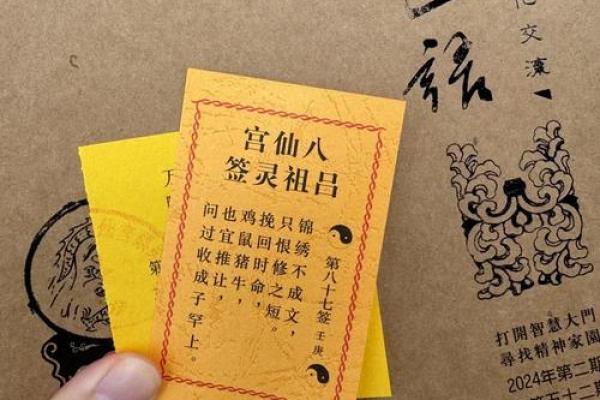 八仙宫
吕祖灵签
第八十七签 壬庚
锦绣不成文，
只恨修之短。
挽回时命，
鸡鼠猪牛，
也宜推让，
问过收成子罕上。
第
交流
话
打開智慧大門
尋找精神家園
2024年第二期
五十二期